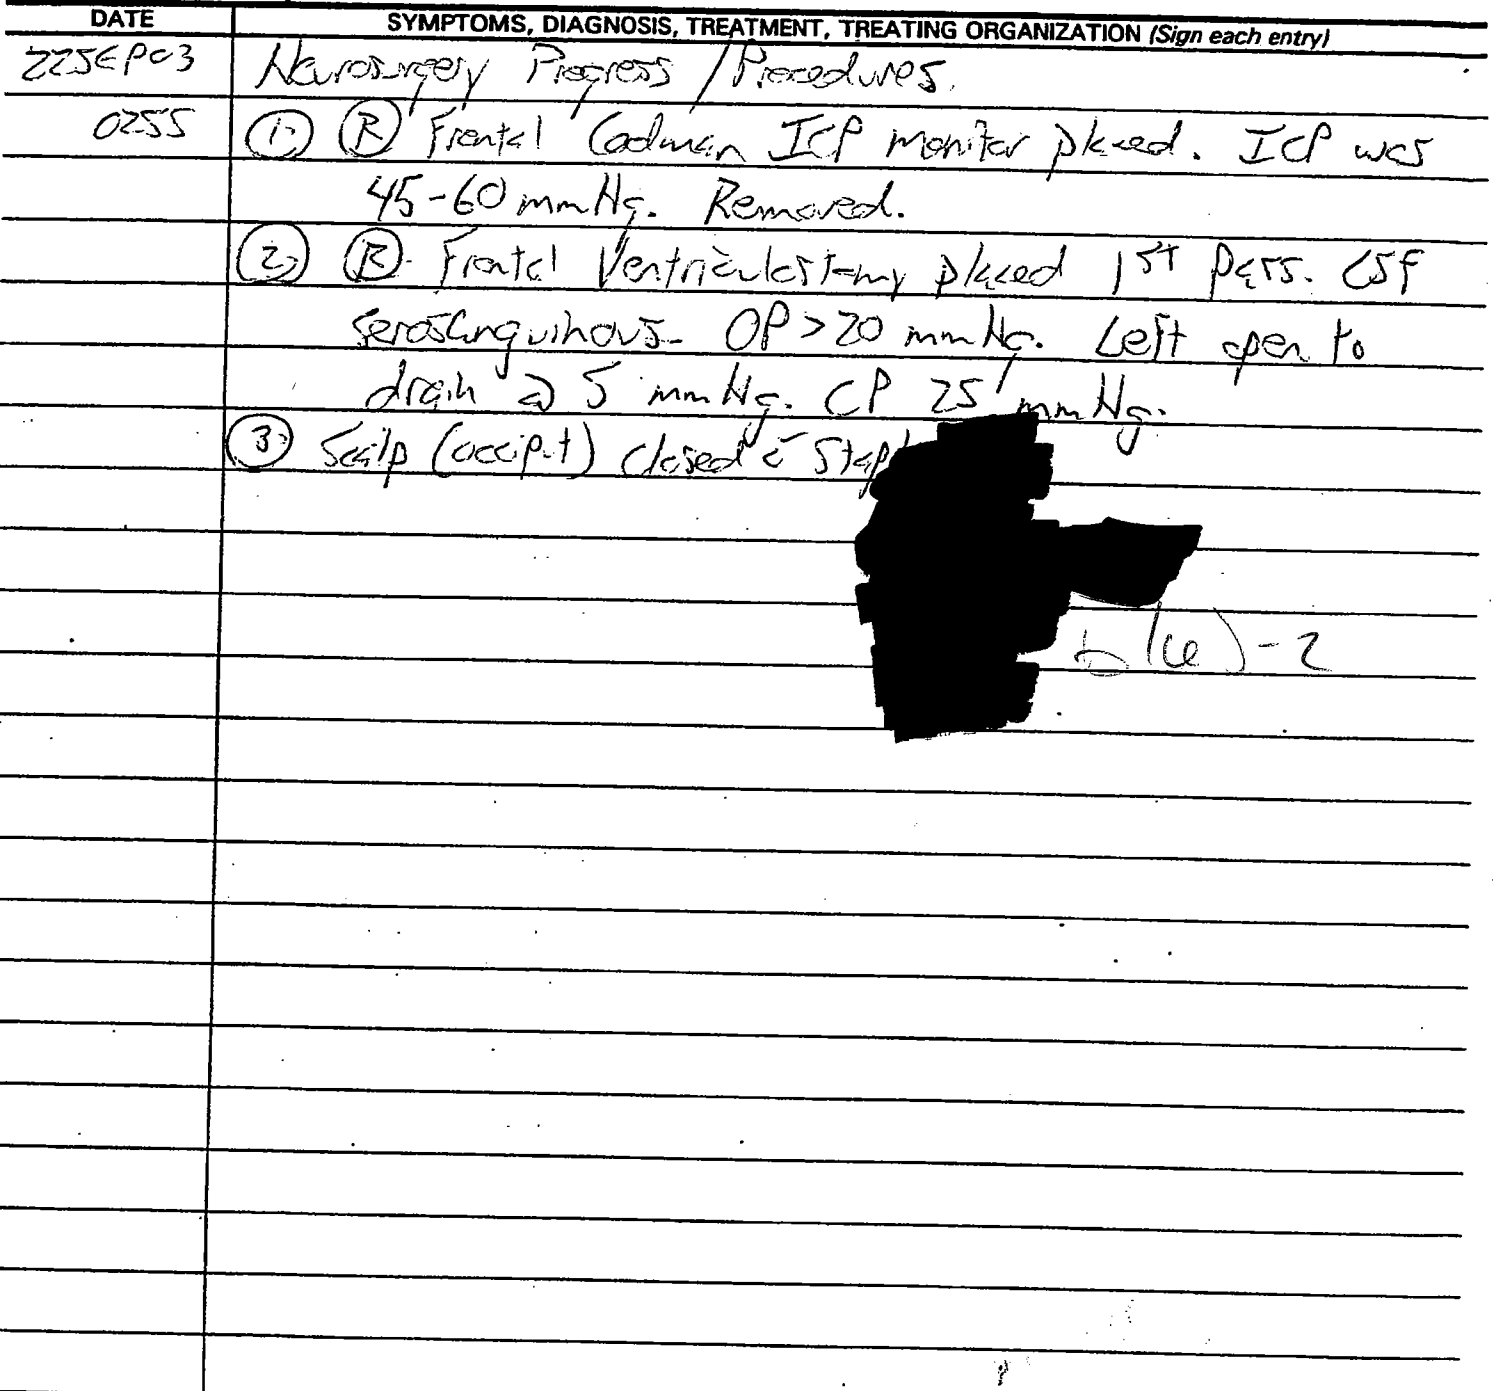 DATE SYMPTOMS, DIAGNOSIS, TREATMENT, TREATING ORGANIZATION (Sign each entry)
22SEP03 Neurosurgery Progress / Procedures.
0255 1. R Frontal Codman ICP monitor placed. ICP was
45-60 mmHg. Removed.
2. R. Frontal Ventriculostomy placed 1st pass. CSF
serosanguinous. OP > 20 mmHg. Left open to
drain @ 5 mmHg. CP 25 mmHg.
3. Scalp (occiput) closed c̄
b(6)-2